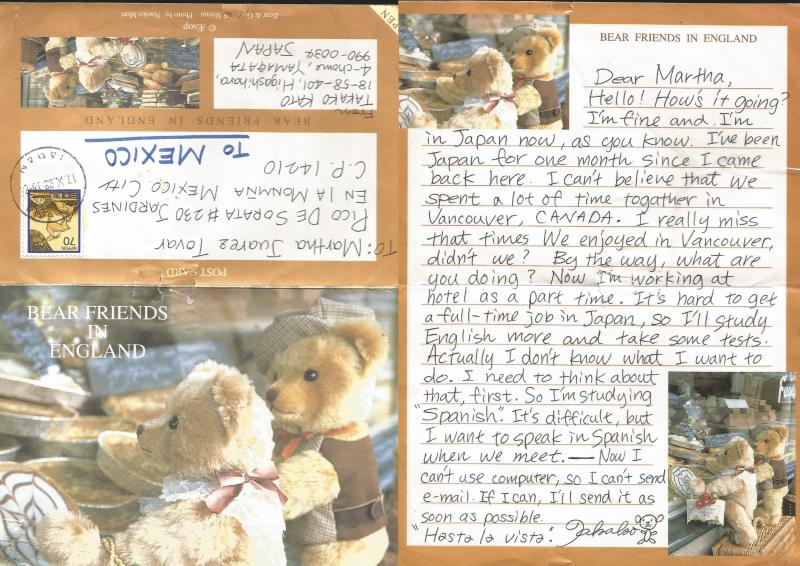 © Æsop
Bear & Goods S. Shima Photo by Naoko Mori
OPEN
From:
TAKAKO KATO
18-55-401, Higashihara,
4-chome, YAMAGATA
990-0034 JAPAN
BEAR FRIENDS IN ENGLAND
JAPAN
NIPPON
70
TO MEXICO
TO: Martha Juarez Tovar
PICO DE SORATA #230 JARDINES
EN LA MONTAÑA MEXICO, City
C.P. 14210
POST CARD
BEAR FRIENDS
IN
ENGLAND
BEAR FRIENDS IN ENGLAND
Dear Martha,
Hello! How's it going?
I'm fine and I'm
in Japan now, as you know. I've been
Japan for one month since I came
back here. I can't believe that we
spent a lot of time together in
Vancouver, CANADA. I really miss
that times We enjoyed in Vancouver,
didn't we? By the way, what are
you doing? Now I'm working at
hotel as a part time. It's hard to get
a full-time job in Japan, so I'll study
English more and take some tests.
Actually I don't know what I want to
do. I need to think about
that, first. So I'm studying
"Spanish". It's difficult, but
I want to speak in Spanish
when we meet. — Now I
can't use computer, so I can't send
e-mail. If I can, I'll send it as
soon as possible.
"Hasta la vista". Takako